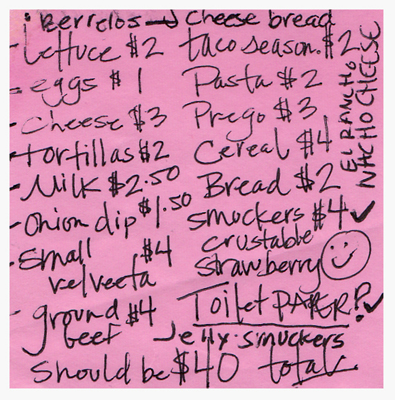 Berrelos → cheese bread
- lettuce $2
- eggs $1
- cheese $3
- tortillas $2
- Milk $2.50
- Onion dip $1.50
- small velveeta $4
- ground beef $4
taco season. $2
Pasta $2
Prego $3
Cereal $4
Bread $2
smuckers $4 ✓
crustable
strawberry ☺
Toilet PAPER? ✓
Jelly smuckers
EL RANCHO
NACHO CHEESE
should be $40 total